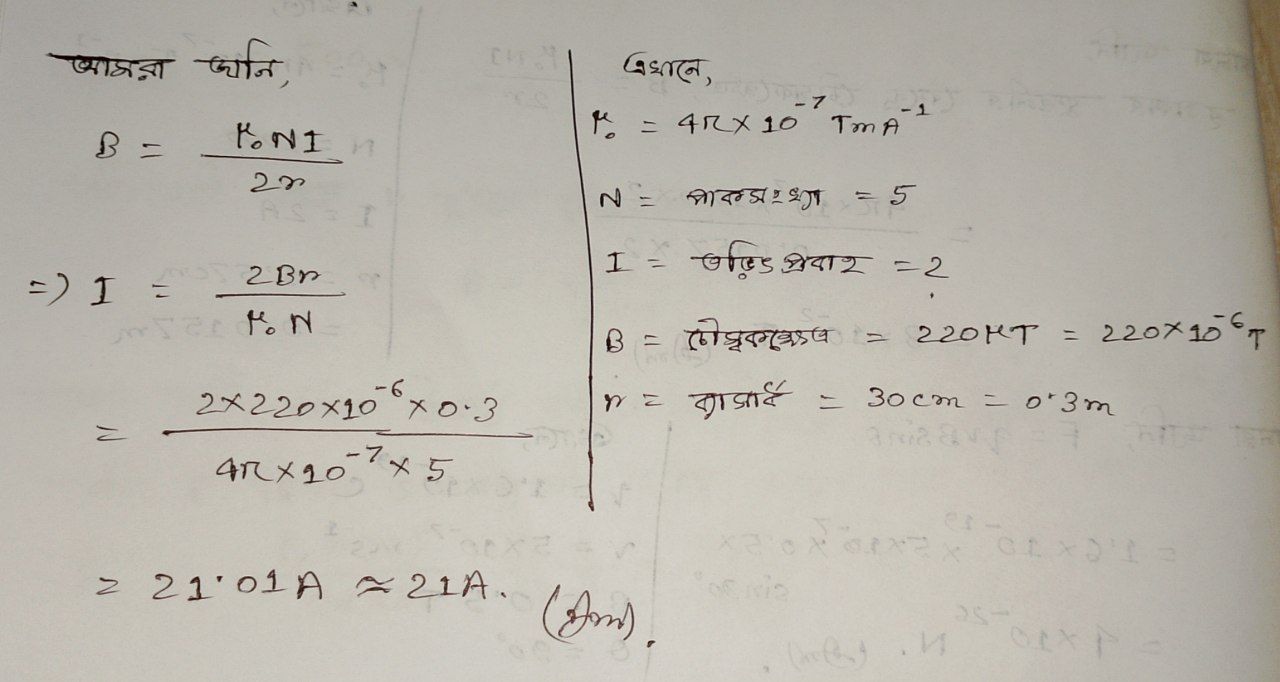 আমরা জানি,
B = μ₀NI / 2r
=> I = 2Br / μ₀N
= 2×220×10⁻⁶×0.3 / 4π×10⁻⁷×5
= 21.01A ≈ 21A. (Ans).
এখানে,
μ₀ = 4π×10⁻⁷ TmA⁻¹
N = পাকসংখ্যা = 5
I = তড়িৎ প্রবাহ = ?
B = চৌম্বকক্ষেত্র = 220μT = 220×10⁻⁶T
r = ব্যাসার্ধ = 30cm = 0.3m